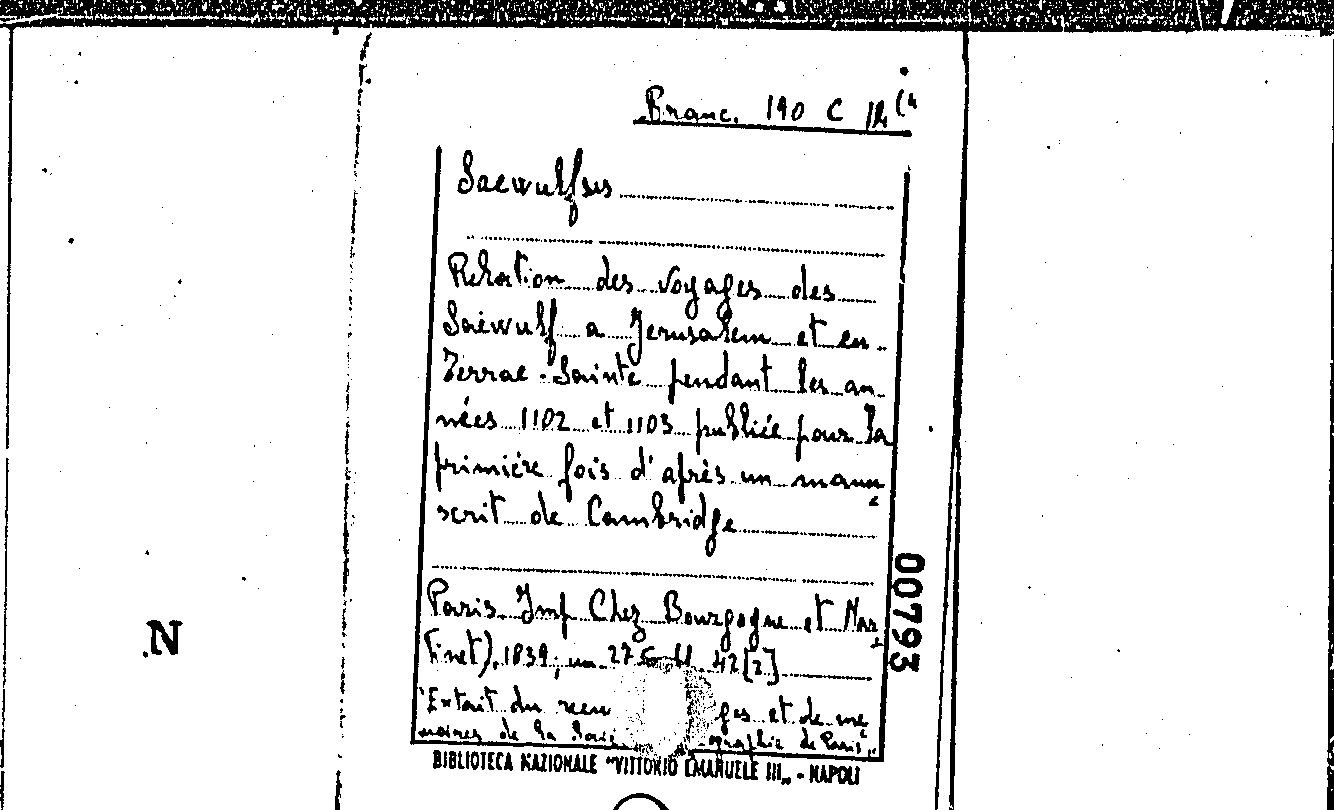 Branc. 190 C
Saewulfsus
Relation des voyages des
Saéwulf a Jerusalem et en
Terrae-Sainte pendant les an-
nées 1102 et 1103 publiée pour la
primiére fois d'après un manu
scrit de Cambridge
Paris. Imp Chez Bourgogne et Mar
tinet), 1839; in 42[2]
"Extait du ges et de mé
moires de la graphie de Paris„
BIBLIOTECA NAZIONALE "VITTORIO EMANUELE III„ - NAPOLI
00793
N